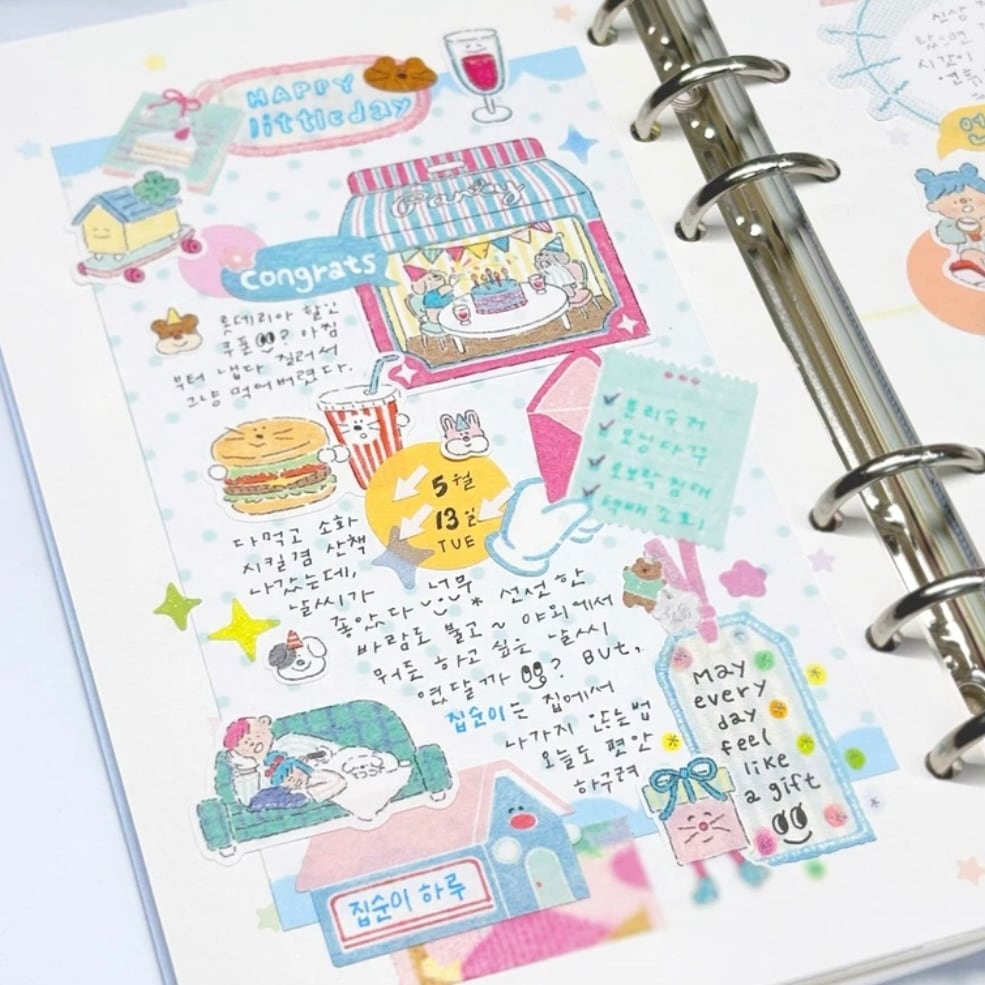 HAPPY
littleday
Party
congrats
롯데리아 할인
쿠폰? 아침
부터 냅다 질러서
그냥 먹어버렸다.
5월
13일
TUE
분리수거
모닝다꾸
택배 조회
다먹고 소화
시킬겸 산책
나갔는데,
날씨가 너무
좋았다 * 선선한
바람도 불고 ~ 야외에서
뭐든 하고 싶은 날씨
였달까? BUT,
집순이는 집에서
나가지 않는법
오늘도 편안
하구려
May
every
day
feel
like
a gift
집순이 하루
심상
시간이